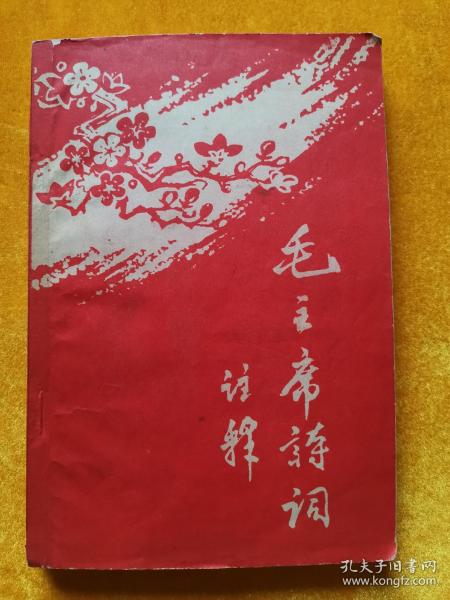 毛主席詩词
註释
孔夫子旧书网
www.kongfz.com